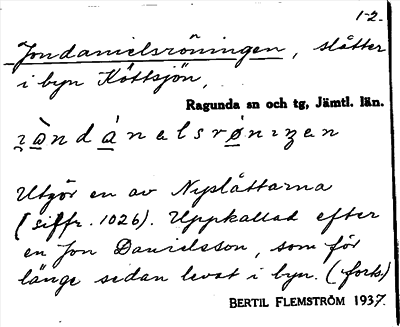 1-2.
Jondanielsröningen, slåtter
i byn Köttsjön,
Ragunda sn och tg, Jämtl. län.
Utgör en av Nyslåttarna
(siffr. 1026). Uppkallad efter
en Jon Danielsson, som för
länge sedan levat i byn. (forts)
BERTIL FLEMSTRÖM 1937.